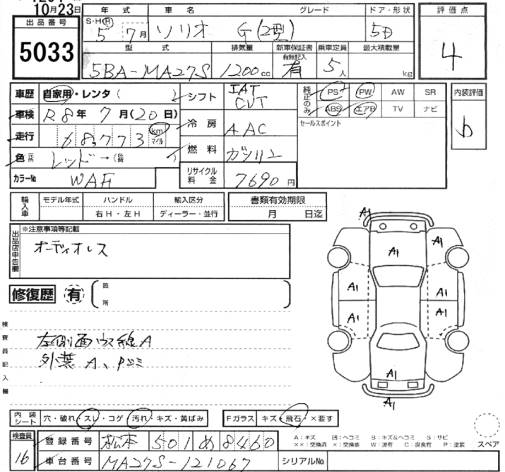 10月23日
S・H・R 年式 車名 グレード ドア・形状 評価点
出品番号 5 7月 ソリオ G(2型) 5D
5033 型式 排気量 新車保証書 有無記入 乗車定員 最大積載量 4
5BA-MA27S 1200cc 有 5人 kg
車歴 自家用・レンタ( ) シフト IAT CVT 純正のみ PS PW AW SR 内装評価
ABS エアB TV ナビ b
車検 R8年7月(20日) 冷房 AAC セールスポイント
走行 68,773 km マイル 燃料 ガソリン
色 レッド→
カラーNo WAF リサイクル料金 7690円
輸入車 モデル年式 ハンドル 輸入区分 書類有効期限
右H・左H ディーラー・並行 月 日迄
出品店申告欄 ※注意事項等記載
オーディオレス
A1
A1 A1
A1 A1
A1 A1
A1
A1
修復歴 有 箇所
検査員記入欄
左側面ウス線A
外装A、Pコミ
内装シート 穴・破れ・スレ・コゲ・汚れ・キズ・黄ばみ Fガラス キズ・飛石・×要す
検査員 16 登録番号 松本 501め8460
車台番号 MA27S-121067 シリアルNo
A:キズ U:ヘコミ B:キズ&ヘコミ S:サビ
××:交換済 ×:交換要 W:波有 C:腐食有 P:塗装 スペア